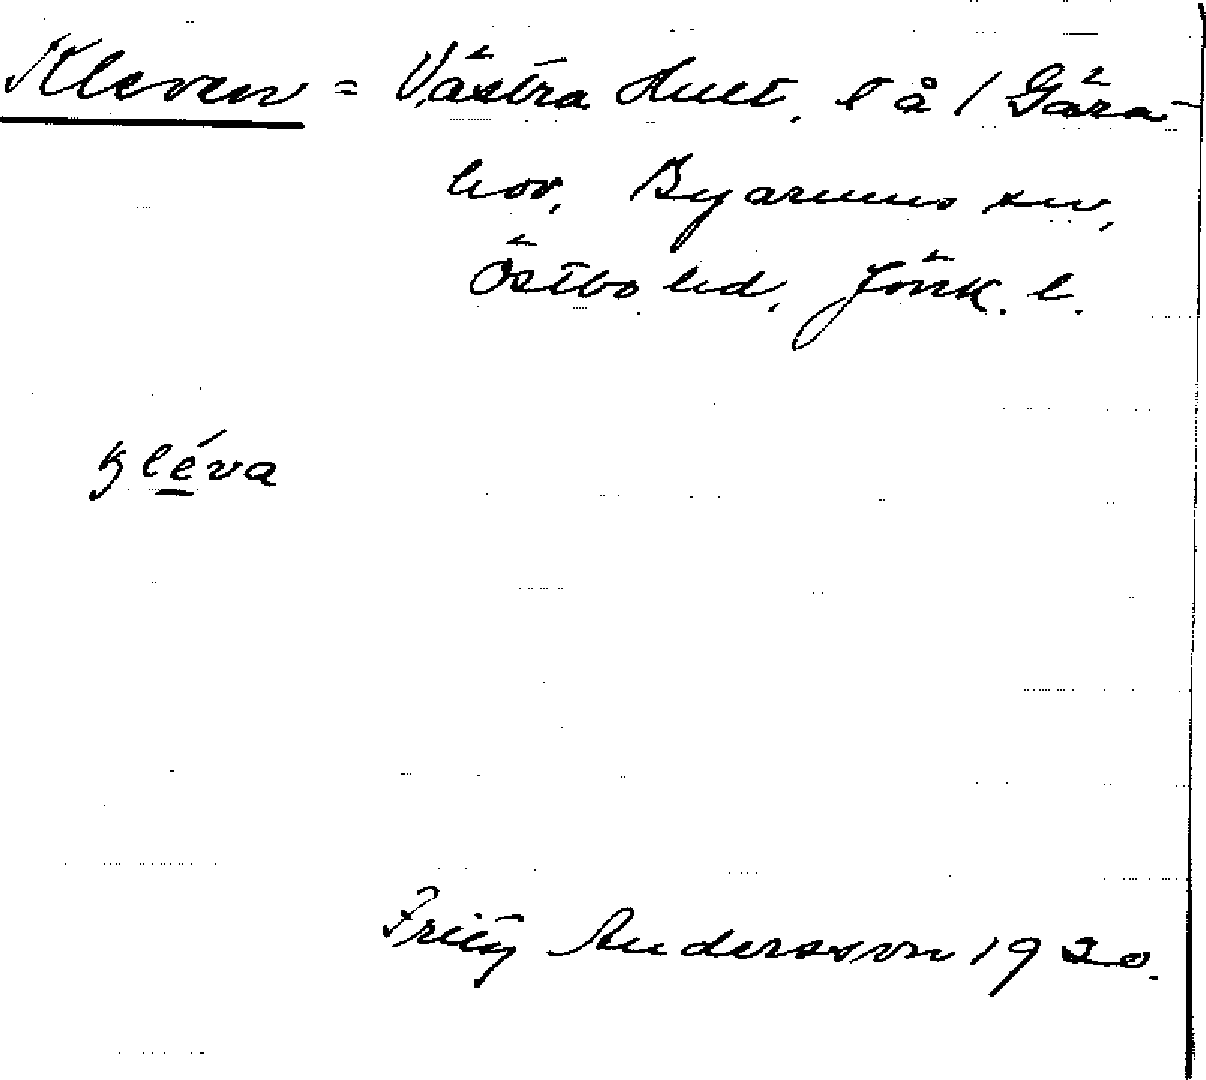 Kleven = Västra Hult, l å / Gåra-
hov, Byarums sn,
Östbo hd, Jönk. l.
kléva
Fritz Andersson 1920.